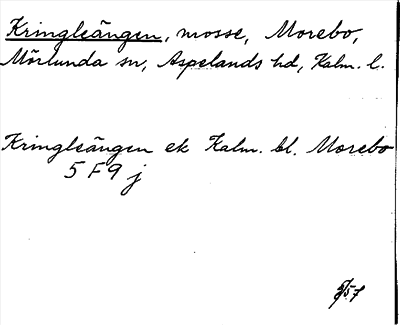 Kringleängen, mosse, Morebo,
Mörlunda sn, Aspelands hd, Kalm. l.
Kringleängen ek Kalm. bl. Morebo
5 F 9 j